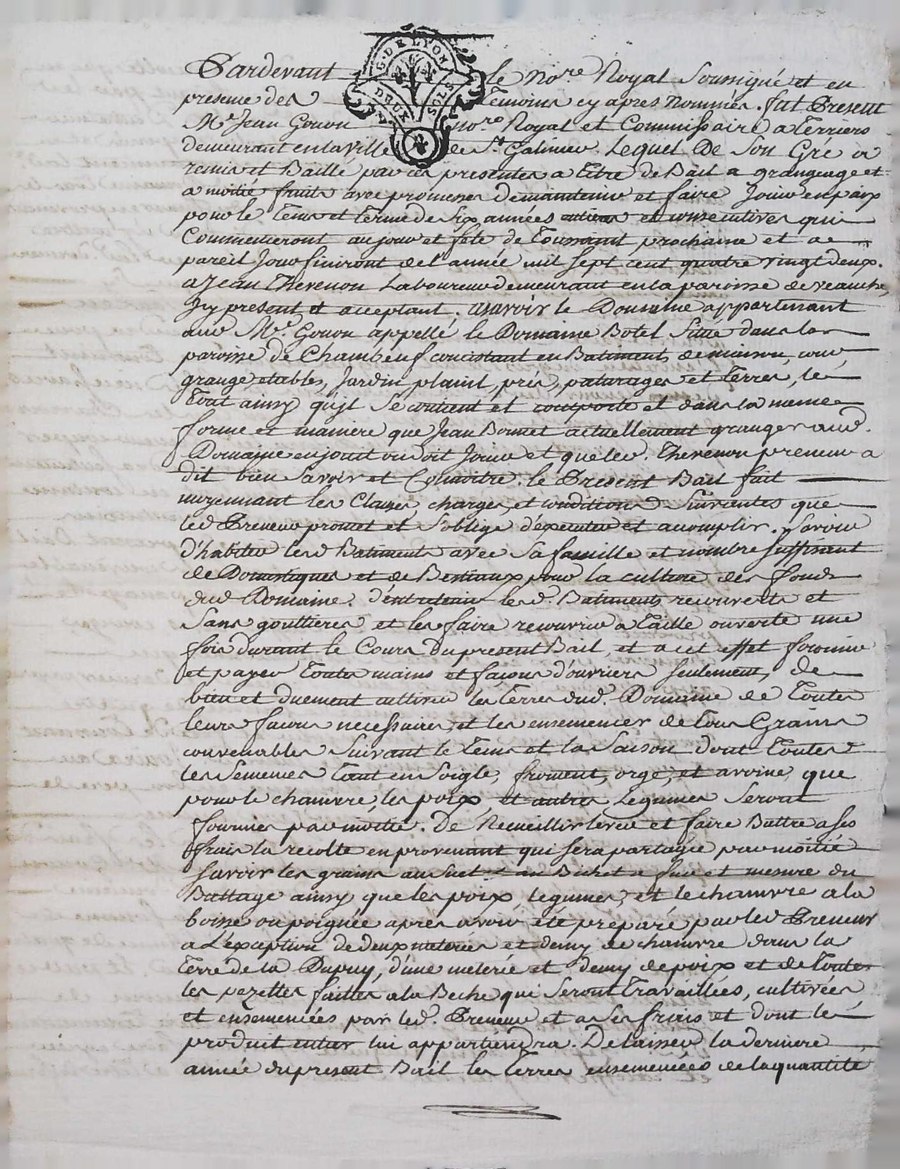 G. DE LYON
DEUX SOLS
Pardevant le no.re Royal Soussigné et en
presence des Temoins cy apres nommés. fut Present
M.e Jean Gouon no.re Royal et Commissaire a Terriers
demeurant en la ville de S.t Galmier Lequel De Son Gré a
remis et Baillé par ces presentes a titre de Bail a grangeage et
a moitié fruits avec promesses de maintenir et faire Jouir en paix
pour le Tems et terme de Six années entieres et consecutives qui
Commenceront au jour et fete de Toussaint prochaine et a
pareil Jour finiront de l'année mil sept cent quatre vingt deux.
a Jean Thevenon Laboureur demeurant en la paroisse de veauche,
Icy present, et acceptant. asavoir le Domaine appartenant
aud. M.e Gouon appellé le Domaine Botel Situé dans la
paroisse de Chambeuf consistant en Batiments, de maison, cour
grange etables, Jardin plaint, prés, paturages et terres, le
Tout ainsy qu'jl se contient et comporte et dans la meme
forme et maniere que Jean Bonnet actuellement granger aud.
Domaine en jouit ou doit Jouir et que led. Thevenon preneur a
dit bien Savoir et Connoitre. le Present Bail fait
moyennant les Clauses, charges, et conditions Suivantes que
led Preneur promet et s'oblige d'executer et acomplir. Savoir
d'habiter lesd Batiments avec Sa famille et nombre suffisent
de Domestiques et de Bestiaux pour la culture des fonds
dud Domaine. d'entretenir lesd. Batiments recouverts et
Sans gouttieres et les faire recouvrir a taille ouverte une
fois durant le Cours du present Bail, et a cet effet fournir
et payer toutes mains et façons d'ouvriers seulement, de
bien et duement cultiver les terres dud. Domaine de Toutes
leurs façons necessaires, et les ensemencer de Tous Grains
convenables Suivant le Tems et la Saison dont Toutes
les Semences tant en Soigle, froment, orge, et avoine, que
pour le chamvre, les poix et autres Legumes Seront
fournies par moitié. De Recueillir lever et faire Battre a ses
frais la recolte en provenant qui sera partagée par moitié
savoir les grains au Suel et au Bichet a fur et mesure du
Battage ainsy que les poix legumes, et le chamvre a la
boisse ou poignée apres avoir été preparé par led. Preneur
a L'exception de deux meterées et demy de chamvre dans la
Terre de la Dupuy, d'une meterée et demy de poix et de toutes
les pezettes faittes a la Beche qui Seront Travaillées, cultivées
et ensemencées par led. Preneur et a ses frais et dont le
produit entier lui appartiendra. De laisser la derniere
année du present Bail les Terres ensemencées de la quantité